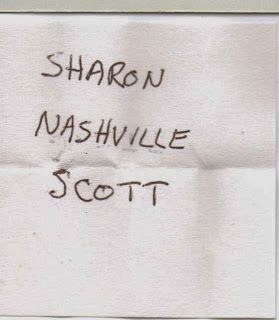 SHARON
NASHVILLE
SCOTT